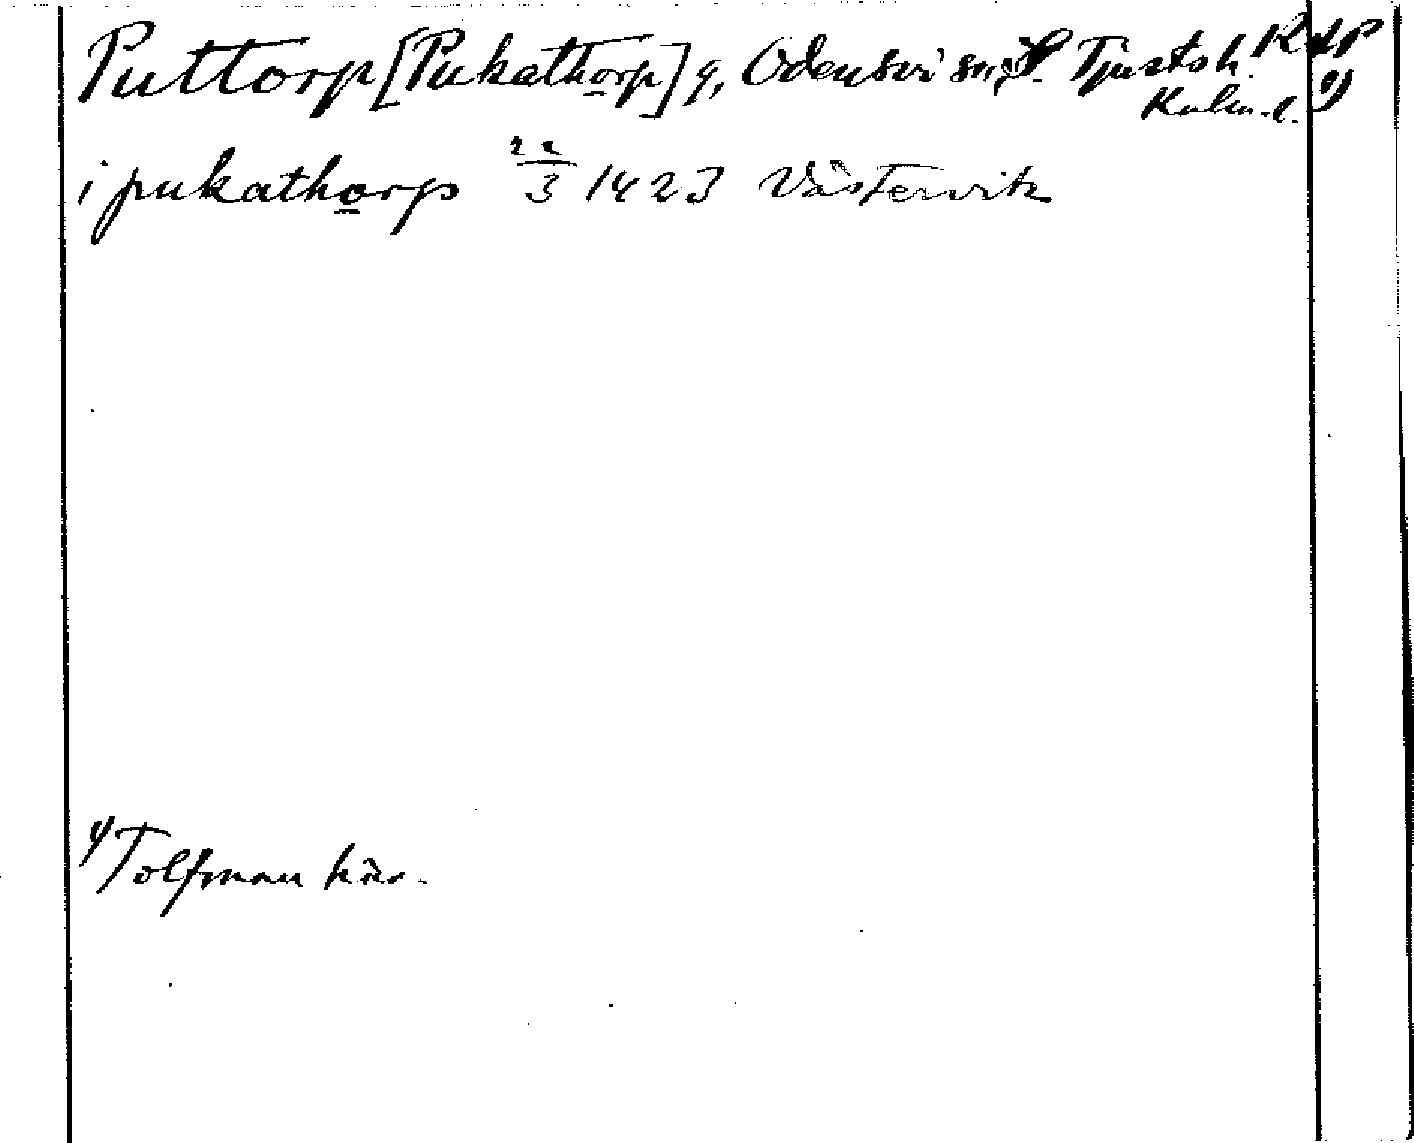 Puttorp [Pukathorp] g, Odensvi sn, S. Tjusts h. RAP
Kalm. l. 1)
i pukathorp 22/3 1423 Västervik
1) Tolfman här.